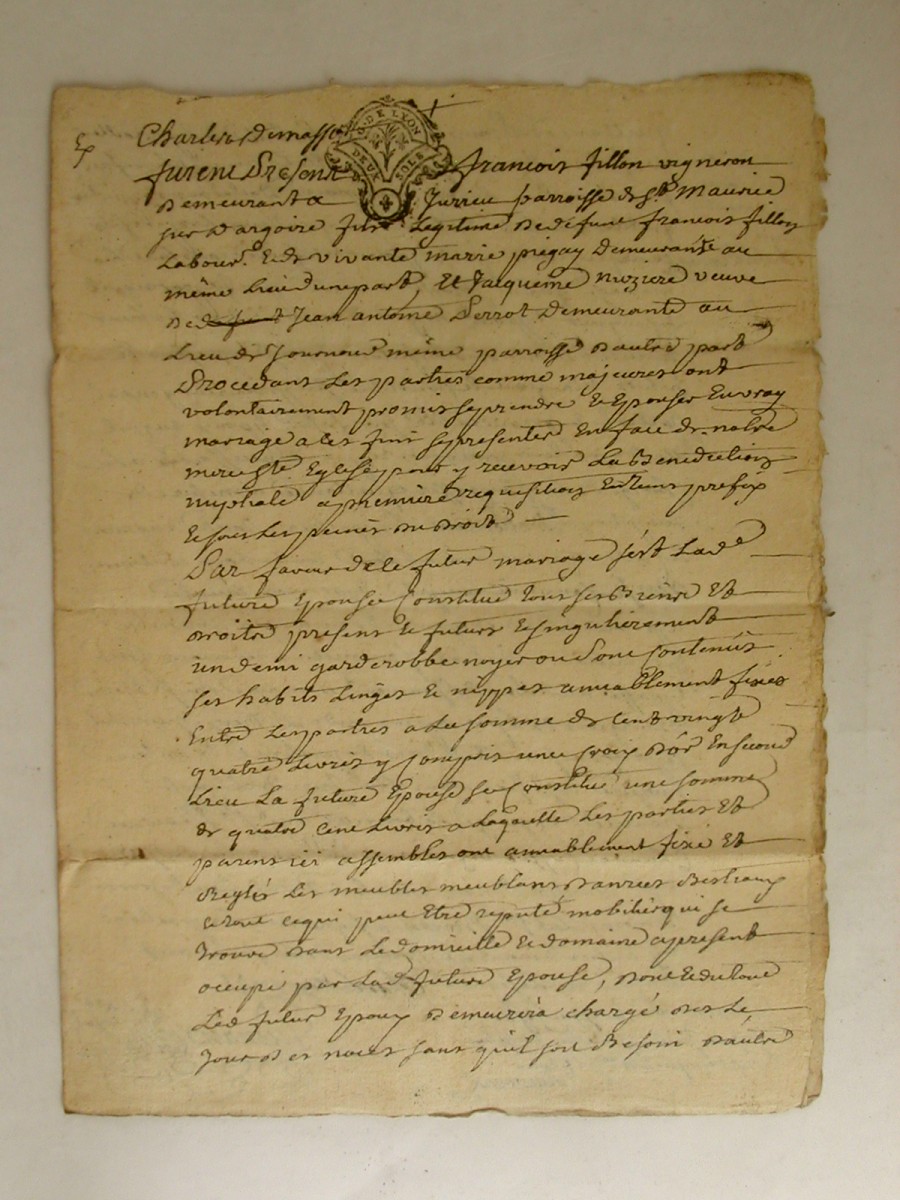 Ex
Charles Demasse
G. DE LYON
DEUX SOLS
furent Presens francois fillon vigneron
Demeurant a Jurieu parroisse de St. Maurice
sur Dargoire fils Legitime de defunt francois fillon
Labour. Et de vivante marie piegay Demeurante au
même Lieu d'une part, Et Jacqueme Noziere veuve
De Jean antoine Perrot Demeurante au
Lieu de même parroisse D'autre part
Procedant Les parties comme majeures ont
volontairement promis se prendre et Epouser En vray
mariage a ces fins se presenter En face de notre
mere Ste. Eglise pour y recevoir La Benediction
nuptiale a premiere requisition En tems prefix
Et sous Les peines du Droit
Par faveur de ce futur mariage s'est Lad.e
future Epouse Constitué tous ses Biens Et
Droits presens et futurs et singulierement
un demi garderobbe noyer ou sont Contenus
ses habits Linges et nippes amiablement fixés
Entre Les parties a La somme de Cent vingt
quatre Livres y Compris une Croix D'or En second
Lieu La future Epouse se Constitue une somme
de quatre Cent Livres a Laquelle Les parties Et
parens ici assemblés ont amiablement fixé Et
Reglés Les meubles meublans Danrées Bestiaux
et tout ce qui peut Etre reputé mobilier qui se
trouve dans Le domicille et domaine apresent
occupé par Lad.e future Epouse, Dont et du tout
Led. futur Epoux Demeurera chargé Des Le
Jour Des noces sans qu'il soit Besoin D'autre